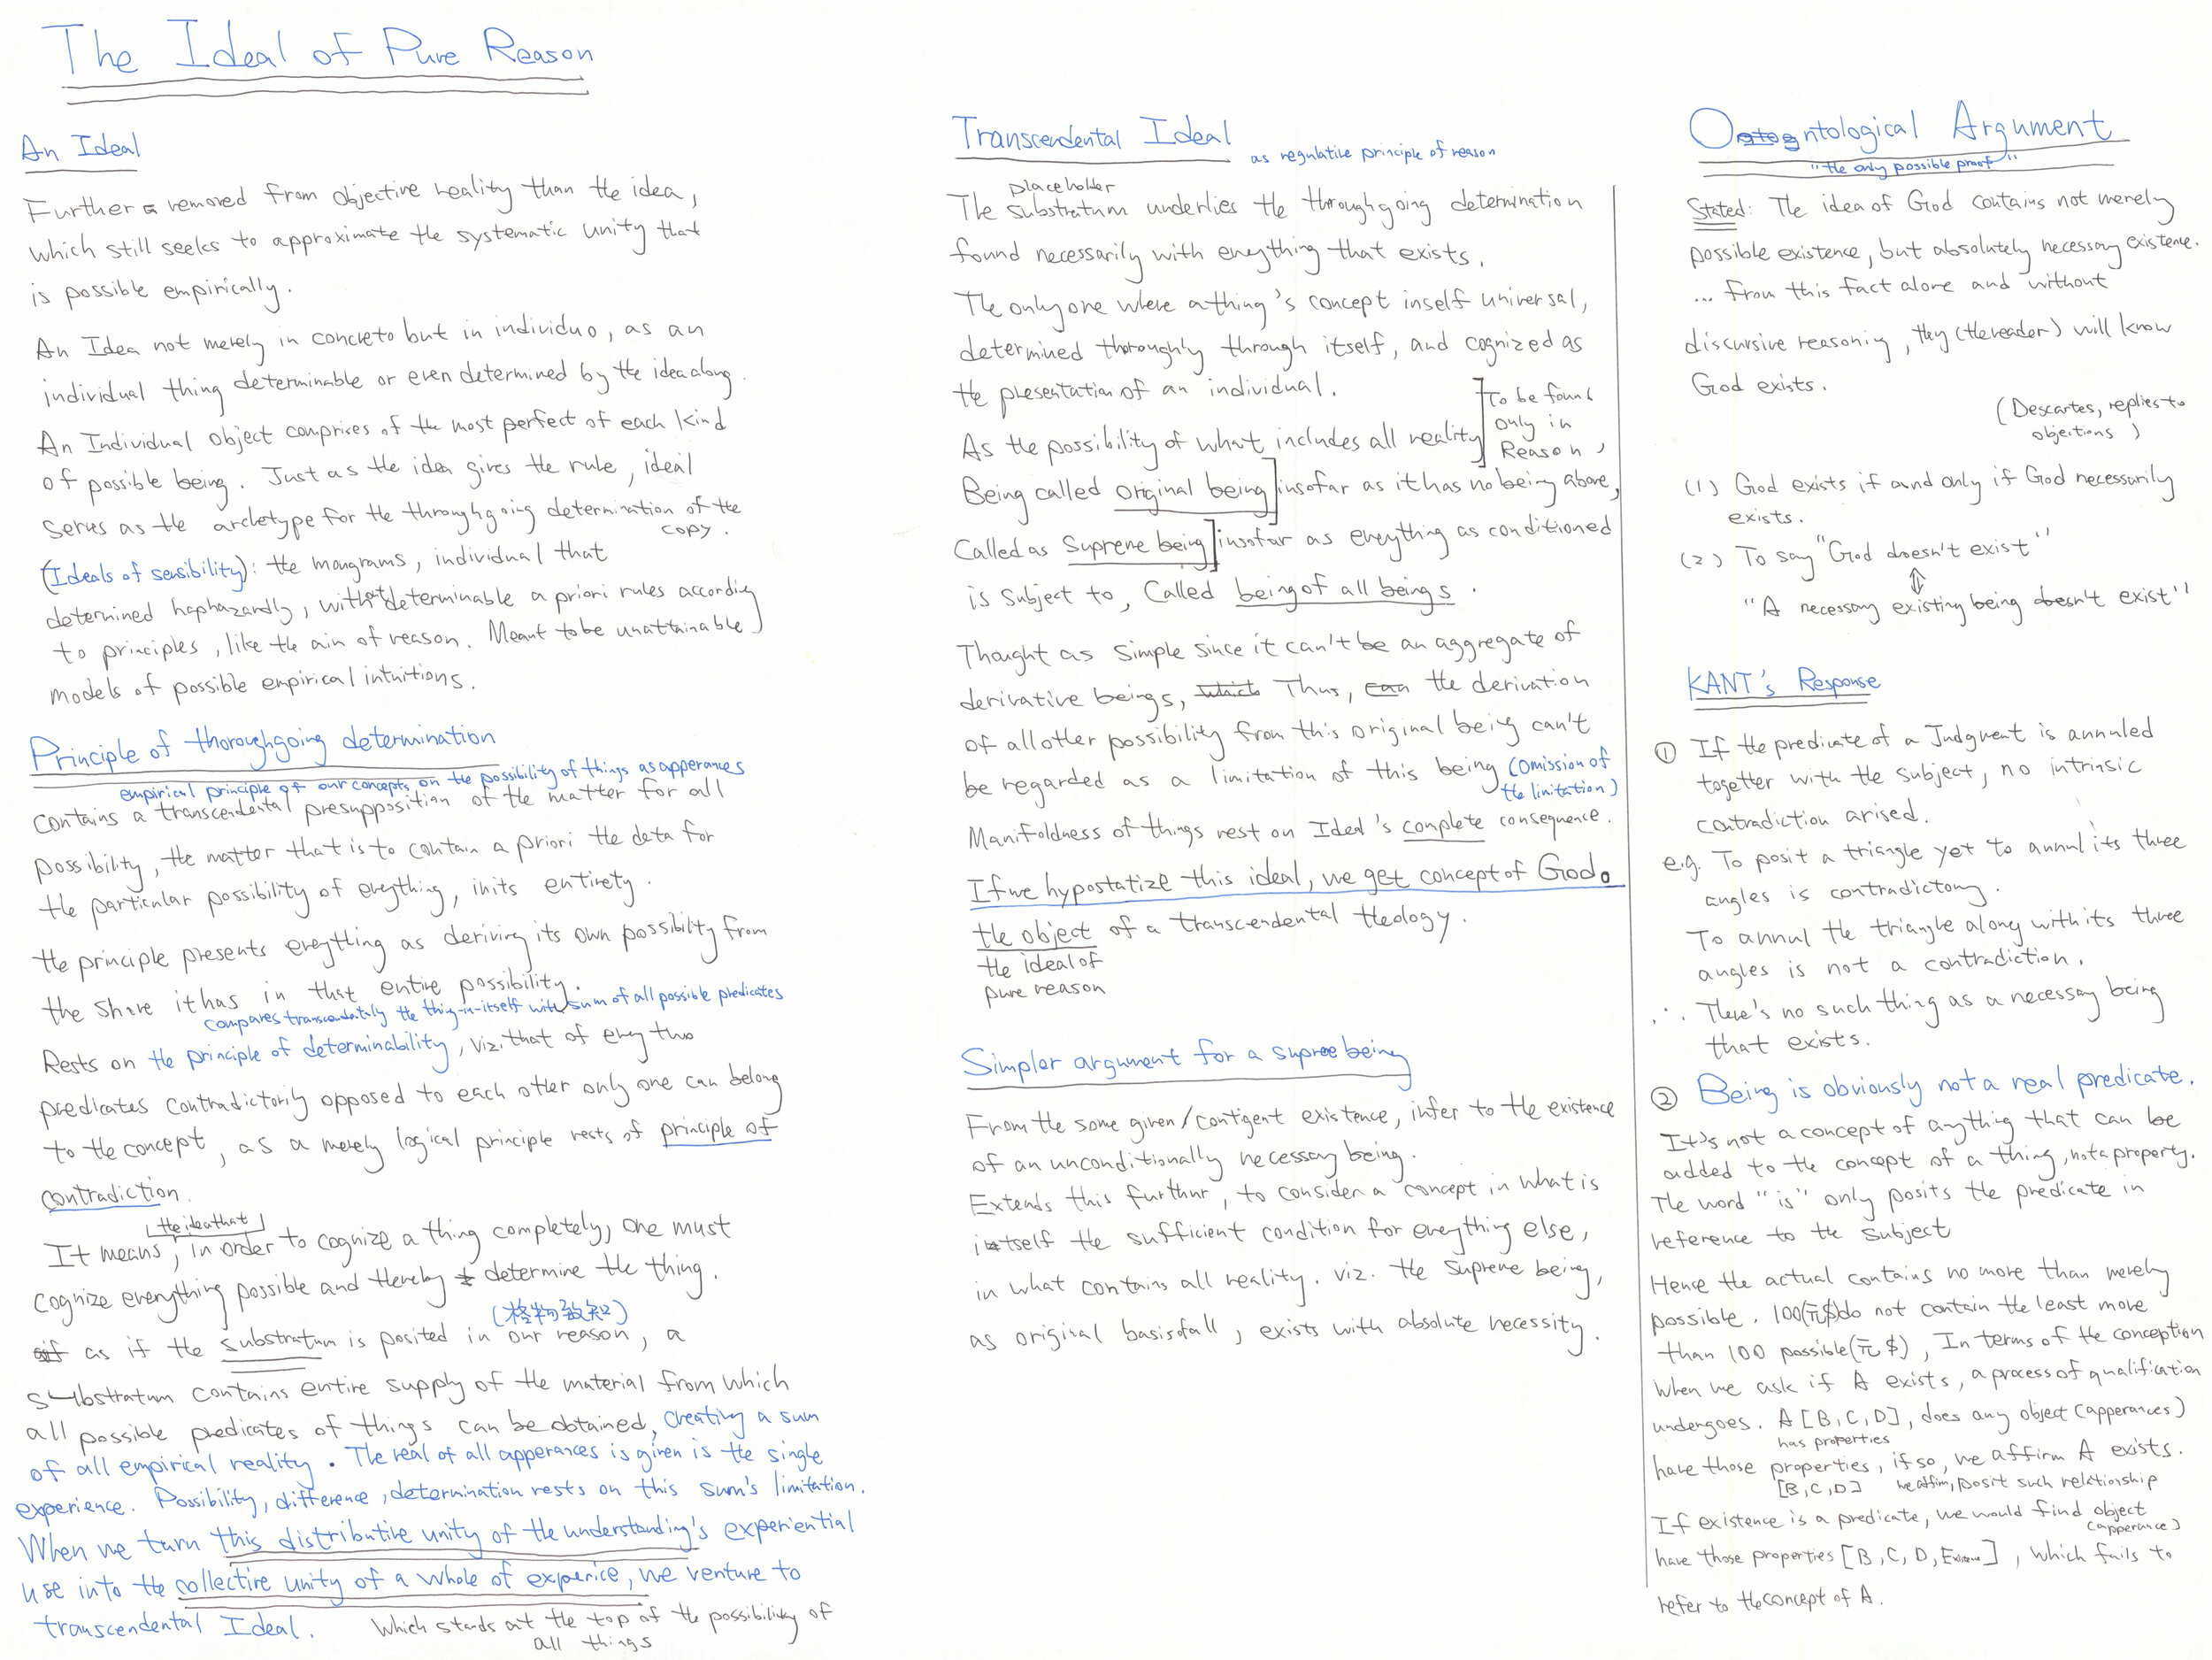 The Ideal of Pure Reason
An Ideal
Further removed from objective reality than the idea,
which still seeks to approximate the systematic unity that
is possible empirically.
An Idea not merely in concreto but in individuo, as an
individual thing determinable or even determined by the idea along.
An Individual object comprises of the most perfect of each kind
of possible being. Just as the idea gives the rule, ideal
serves as the archetype for the throughgoing determination of the
copy.
(Ideals of sensibility): the mongrams, individual that
determined haphazardly, without determinable a priori rules according
to principles, like the aim of reason. Meant to be unattainable
models of possible empirical intuitions.
Principle of thoroughgoing determination
empirical principle of our concepts on the possibility of things as apperances
contains a transcendental presupposition of the matter for all
possibility, the matter that is to contain a priori the data for
the particular possibility of everything, in its entirety.
the principle presents everything as deriving its own possibility from
the share it has in that entire possibility.
compares transcendentally the thing-in-itself with sum of all possible predicates
Rests on the principle of determinability, viz. that of every two
predicates contradictorily opposed to each other only one can belong
to the concept, as a merely logical principle rests of principle of
contradiction.
the idea that
It means, in order to cognize a thing completely, one must
cognize everything possible and thereby determine the thing.
(格物致知)
as if the substratum is posited in our reason, a
substratum contains entire supply of the material from which
all possible predicates of things can be obtained, creating a sum
of all empirical reality. The real of all apperances is given is the single
experience. Possibility, difference, determination rests on this sum's limitation.
When we turn this distributive unity of the understanding's experiential
use into the collective unity of a whole of experice, we venture to
transcendental Ideal. Which stands at the top of the possibility of
all things
Transcendental Ideal
as regulative principle of reason
placeholder
The substratum underlies the throughgoing determination
found necessarily with everything that exists.
The only one where a thing's concept inself universal,
determined thoroughly through itself, and cognized as
the presentation of an individual.
As the possibility of what includes all reality] To be found only in Reason,
Being called original being] insofar as it has no being above,
Called as Supreme being] insofar as everything as conditioned
is subject to, Called being of all beings.
Thought as simple since it can't be an aggregate of
derivative beings, which Thus, can the derivation
of all other possibility from this original being can't
be regarded as a limitation of this being (omission of
the limitation)
Manifoldness of things rest on Ideal's complete consequence.
If we hypostatize this ideal, we get concept of God.
the object of a transcendental theology.
the ideal of
pure reason
Simpler argument for a supree being
From the some given/contigent existence, infer to the existence
of an unconditionally necessary being.
Extends this furthur, to consider a concept in what is
itself the sufficient condition for everything else,
in what contains all reality. viz. the supreme being,
as original basis of all, exists with absolute necessity.
Ontological Argument
"the only possible proof"
Stated: The idea of God contains not merely
possible existence, but absolutely necessary existence.
... From this fact alone and without
discursive reasoning, they (the reader) will know
God exists.
(Descartes, replies to
objections)
(1) God exists if and only if God necessarily
exists.
(2) To say "God doesn't exist"
⇕
"A necessary existing being doesn't exist"
KANT's Response
① If the predicate of a Judgment is annuled
together with the subject, no intrinsic
contradiction arised.
e.g. To posit a triangle yet to annul its three
angles is contradictory.
To annul the triangle along with its three
angles is not a contradiction.
∴ There's no such thing as a necessary being
that exists.
② Being is obviously not a real predicate.
It's not a concept of anything that can be
added to the concept of a thing, not a property.
The word "is" only posits the predicate in
reference to the subject
Hence the actual contains no more than merely
possible. 100(元$) do not contain the least more
than 100 possible(元$), In terms of the conception
When we ask if A exists, a process of qualification
undergoes. A [B, C, D], does any object (apperances)
has properties
have those properties, if so, we affirm A exists.
[B, C, D] we affirm, posit such relationship
If existence is a predicate, we would find object
(apperance)
have those properties [B, C, D, Existence], which fails to
refer to the concept of A.